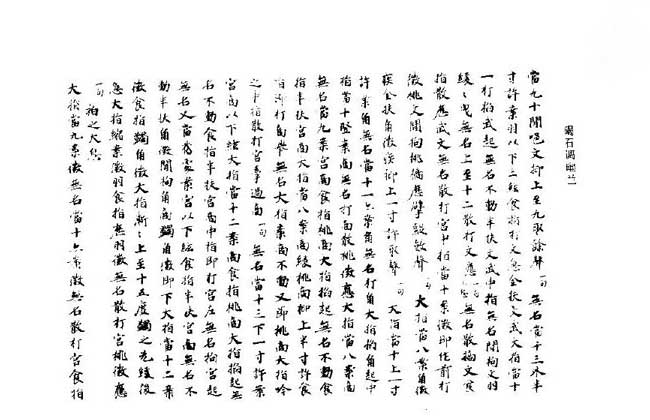 碣石調幽蘭
當九十間文抑上至九取餘聲一句 無名當十三外半
寸許案羽以下三絃食指打文急全扶文武文指當十
一打指武起無名不動半扶文武中指無名間拘文羽
緩緩曳無名上至十二散打文應一句無名散摘文食
指散應武文無名散打宮中指當十案徵即作前打
徵挑文間拘挑徵應擘歇聲一句 大指當八案角徵
疾全扶角徵抑上一寸許取聲一句 大指當十上一寸
許案角無名當十一案角無名打角大指掐角起中
指當十豎案商無名打商散挑徵應大指當八案商
無名當九案宮商食指挑商大指掐起無名不動食
指半扶宮商大指當八案商緩挑商抑上半寸許食
指打商無名大指案商不動又即挑商大指吟
之中指散打宮一句 無名當十三下一寸許案
宮商以下大指當十二案商食指挑商大指掐起無
名不動食指半扶宮商中指即打宮無名拘宮起
無名又當案宮以下絃食指半扶宮商無名不
動半扶角徵間拘角商蠲角徵即下大指當十二案
徵食指蠲角徵大指漸漸上至十五度蠲之先緩後
急大指縮案徵羽食指應羽徵無名散打宮挑徵應
一句 拍之大
大指當九案徵無名當十案徵無名散打宮食指